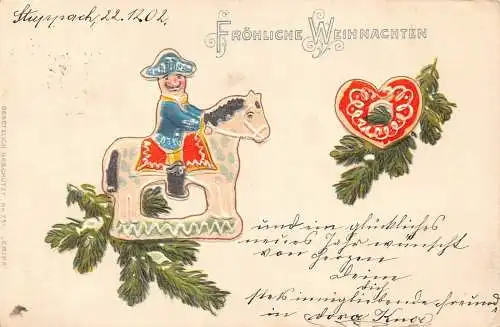 Stuppach, 22.12.02.
FRÖHLICHE WEIHNACHTEN
und ein glückliches
neues Jahr wünscht
von Herzen
Deine
dich
stets innigliebende Freundin
in Dora
GESETZLICH GESCHÜTZT